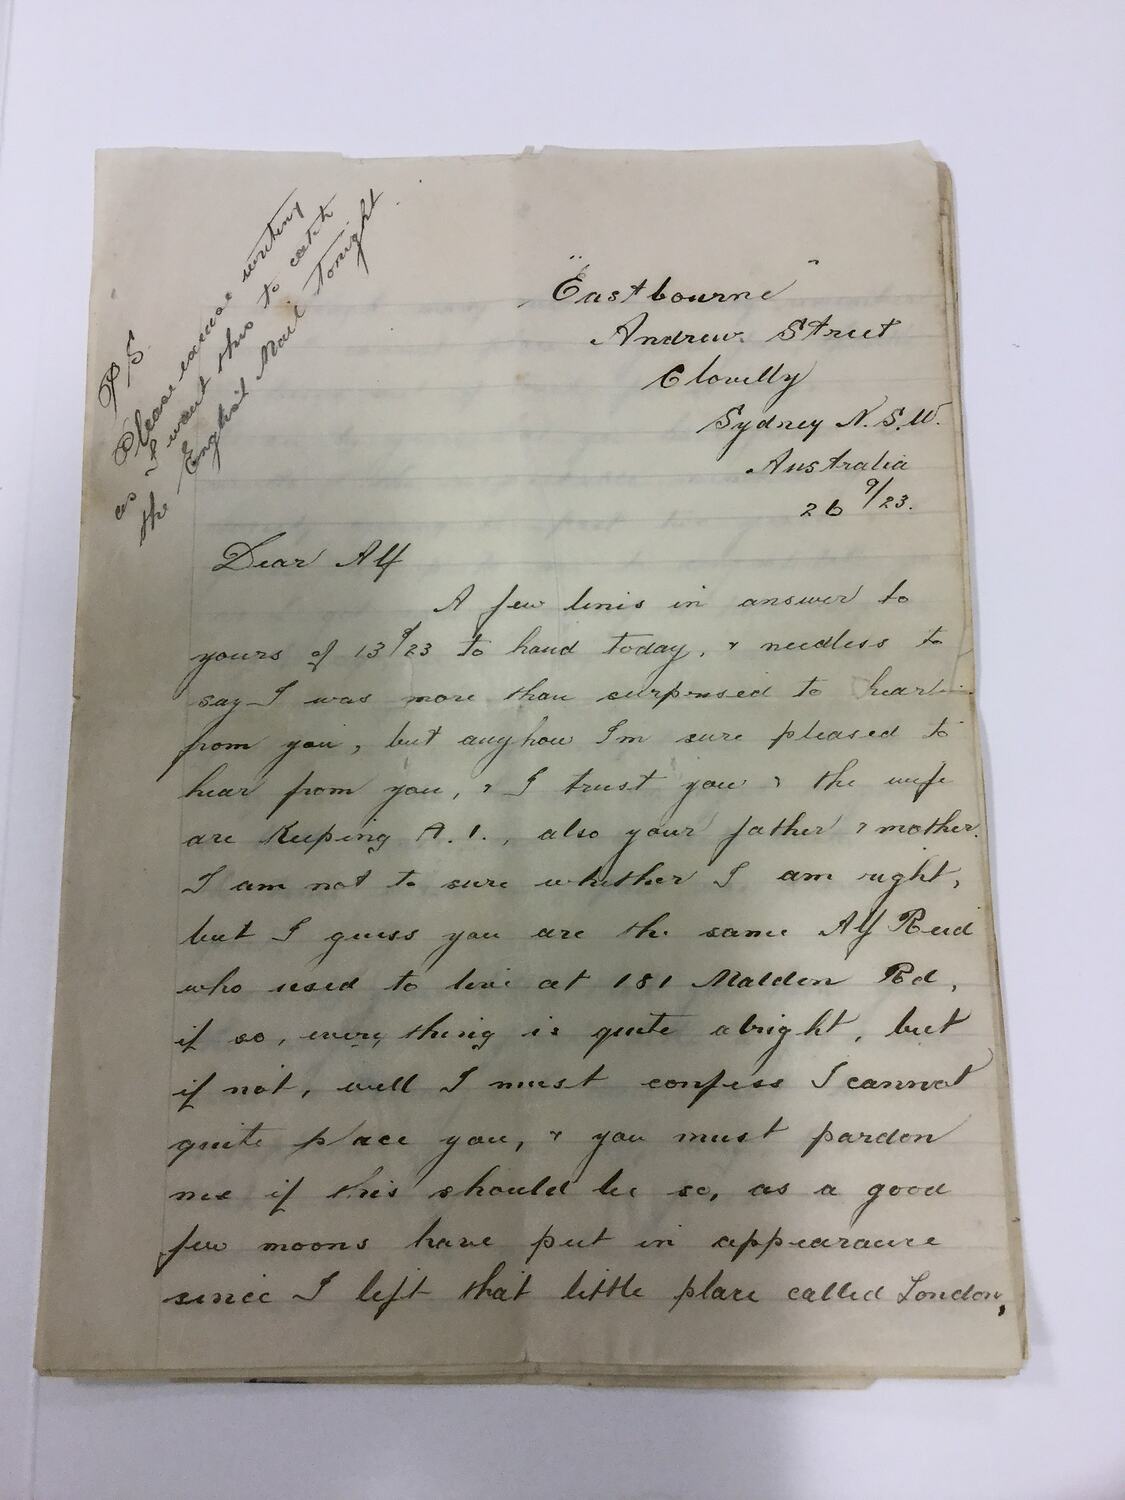 P.S.
Please excuse writing
as I want this to catch
the English Mail tonight
"Eastbourne"
Andrew Street
Clovelly
Sydney N.S.W.
Australia
26 9/23.
Dear Alf
A few lines in answer to
yours of 13/8/23 to hand today, & needless to
say I was more than surprised to hear
from you, but anyhow Im sure pleased to
hear from you, & I trust you & the wife
are keeping A.1., also your father & mother.
I am not to sure whether I am right,
but I guess you are the same Alf Reid
who used to live at 181 Malden Rd,
if so, every thing is quite alright, but
if not, well I must confess I cannot
quite place you, & you must pardon
me if this should be so, as a good
few moons have put in appearance
since I left that little place called London,